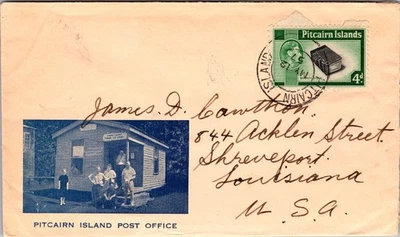 Pitcairn Islands
4d
PITCAIRN ISLAND
James D. Cawthon
844 Acklen Street.
Shreveport.
Louisiana
U. S. A.
PITCAIRN ISLAND POST OFFICE